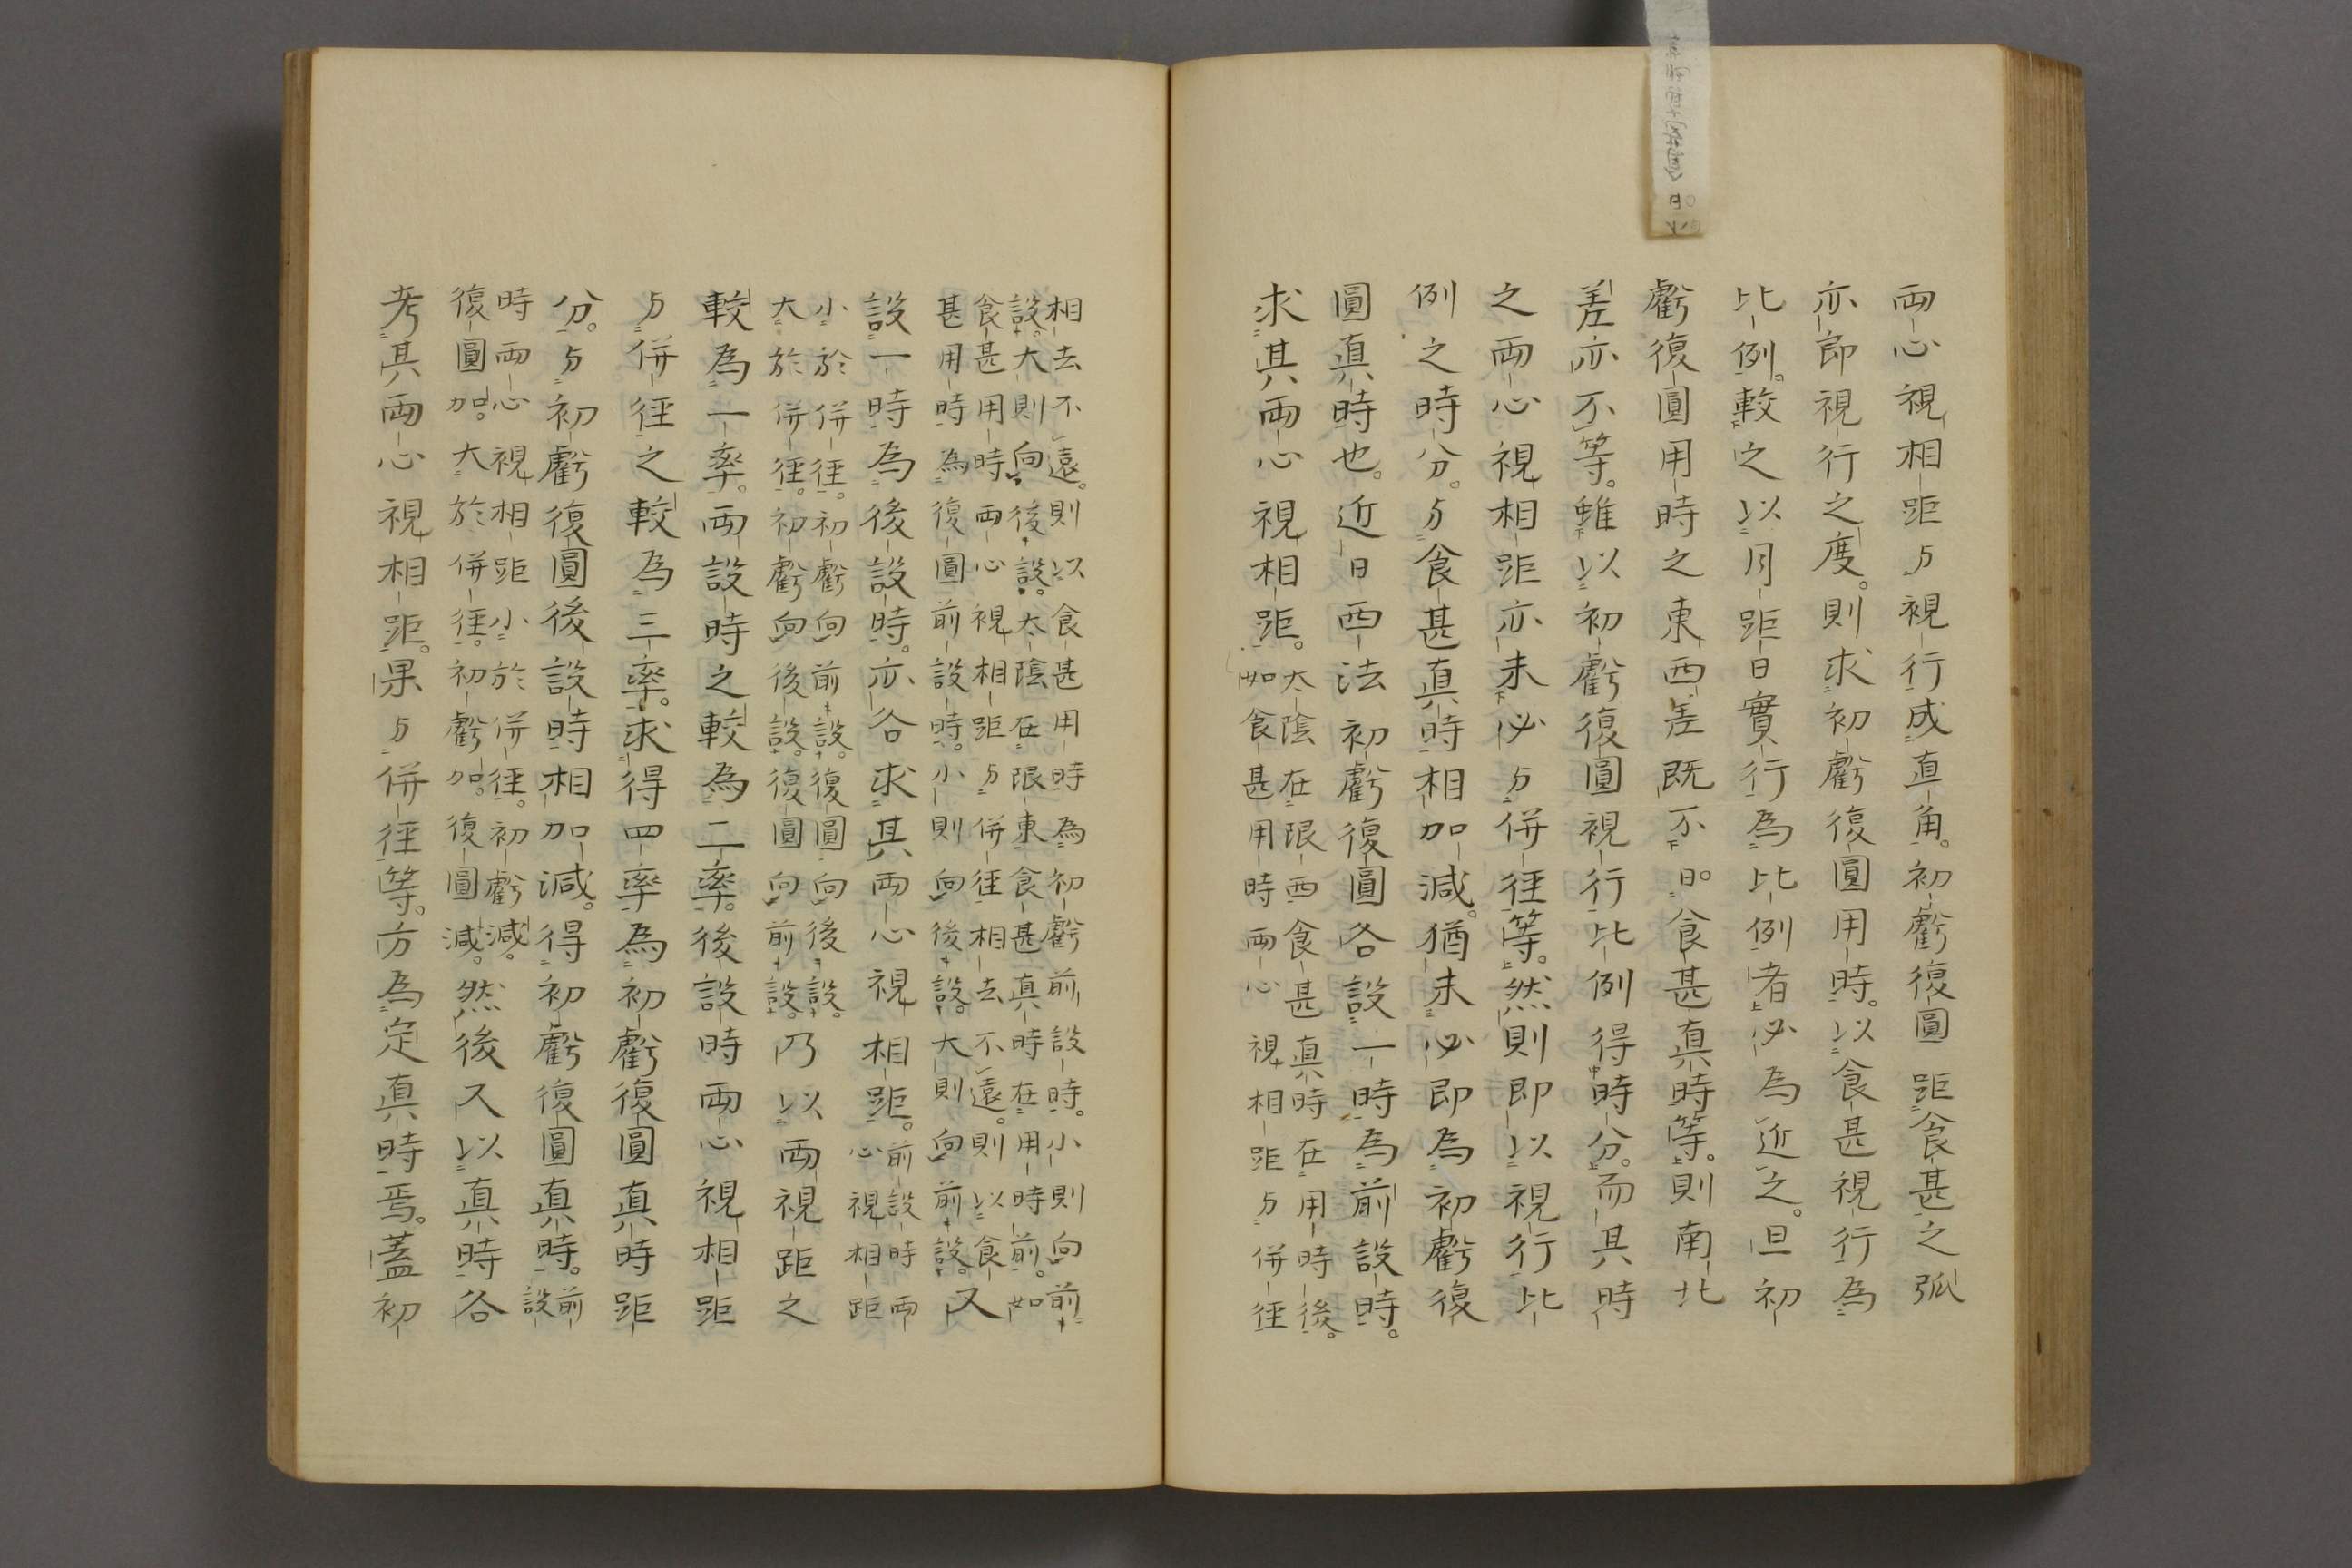 両心視相距与視行成直角。初虧復圓距食甚之弧
亦即視行之度。則求初虧復圓用時。以食甚視行為
比例。較之以月距日實行為比例者必為近之。但初
虧復圓用時之東西差既不曰。食甚真時等。則南北
差亦不等。雖以初虧復圓視行比例得時分。而其時
之両心視相距亦未必与併径等。然則即以視行比
例之時分。与食甚真時相加減。猶未必即為初虧復
圓真時也。近日西法初虧復圓各設一時為前設時。
求其両心視相距。
太陰在限西食甚真時在用時後。
如食甚用時両心視相距与併径
相去不遠。則以食甚用時為初虧前設時。小則向前
設。大則向後設。太陰在限東食甚真時在用時前。如
食甚用時両心視相距与併径相去不遠。則以食
甚用時為復圓前設時。小則向後設。大則向前設。又
設一時為後設時。亦各求其両心視相距。
前設時両
心視相距
小於併径。初虧向前設。復圓向後設。
大於併径。初虧向後設。復圓向前設。
乃以両視距之
較為一率。両設時之較為二率。後設時両心視相距
与併径之較為三率。求得四率為初虧復圓真時距
分。与初虧復圓後設時相加減。得初虧復圓真時。
前
設
時両心視相距小於併径。初虧減。
復圓加。大於併径。初虧加。復圓減。
然後又以真時各
考其両心視相距。果与併径等。方為定真時焉。蓋初